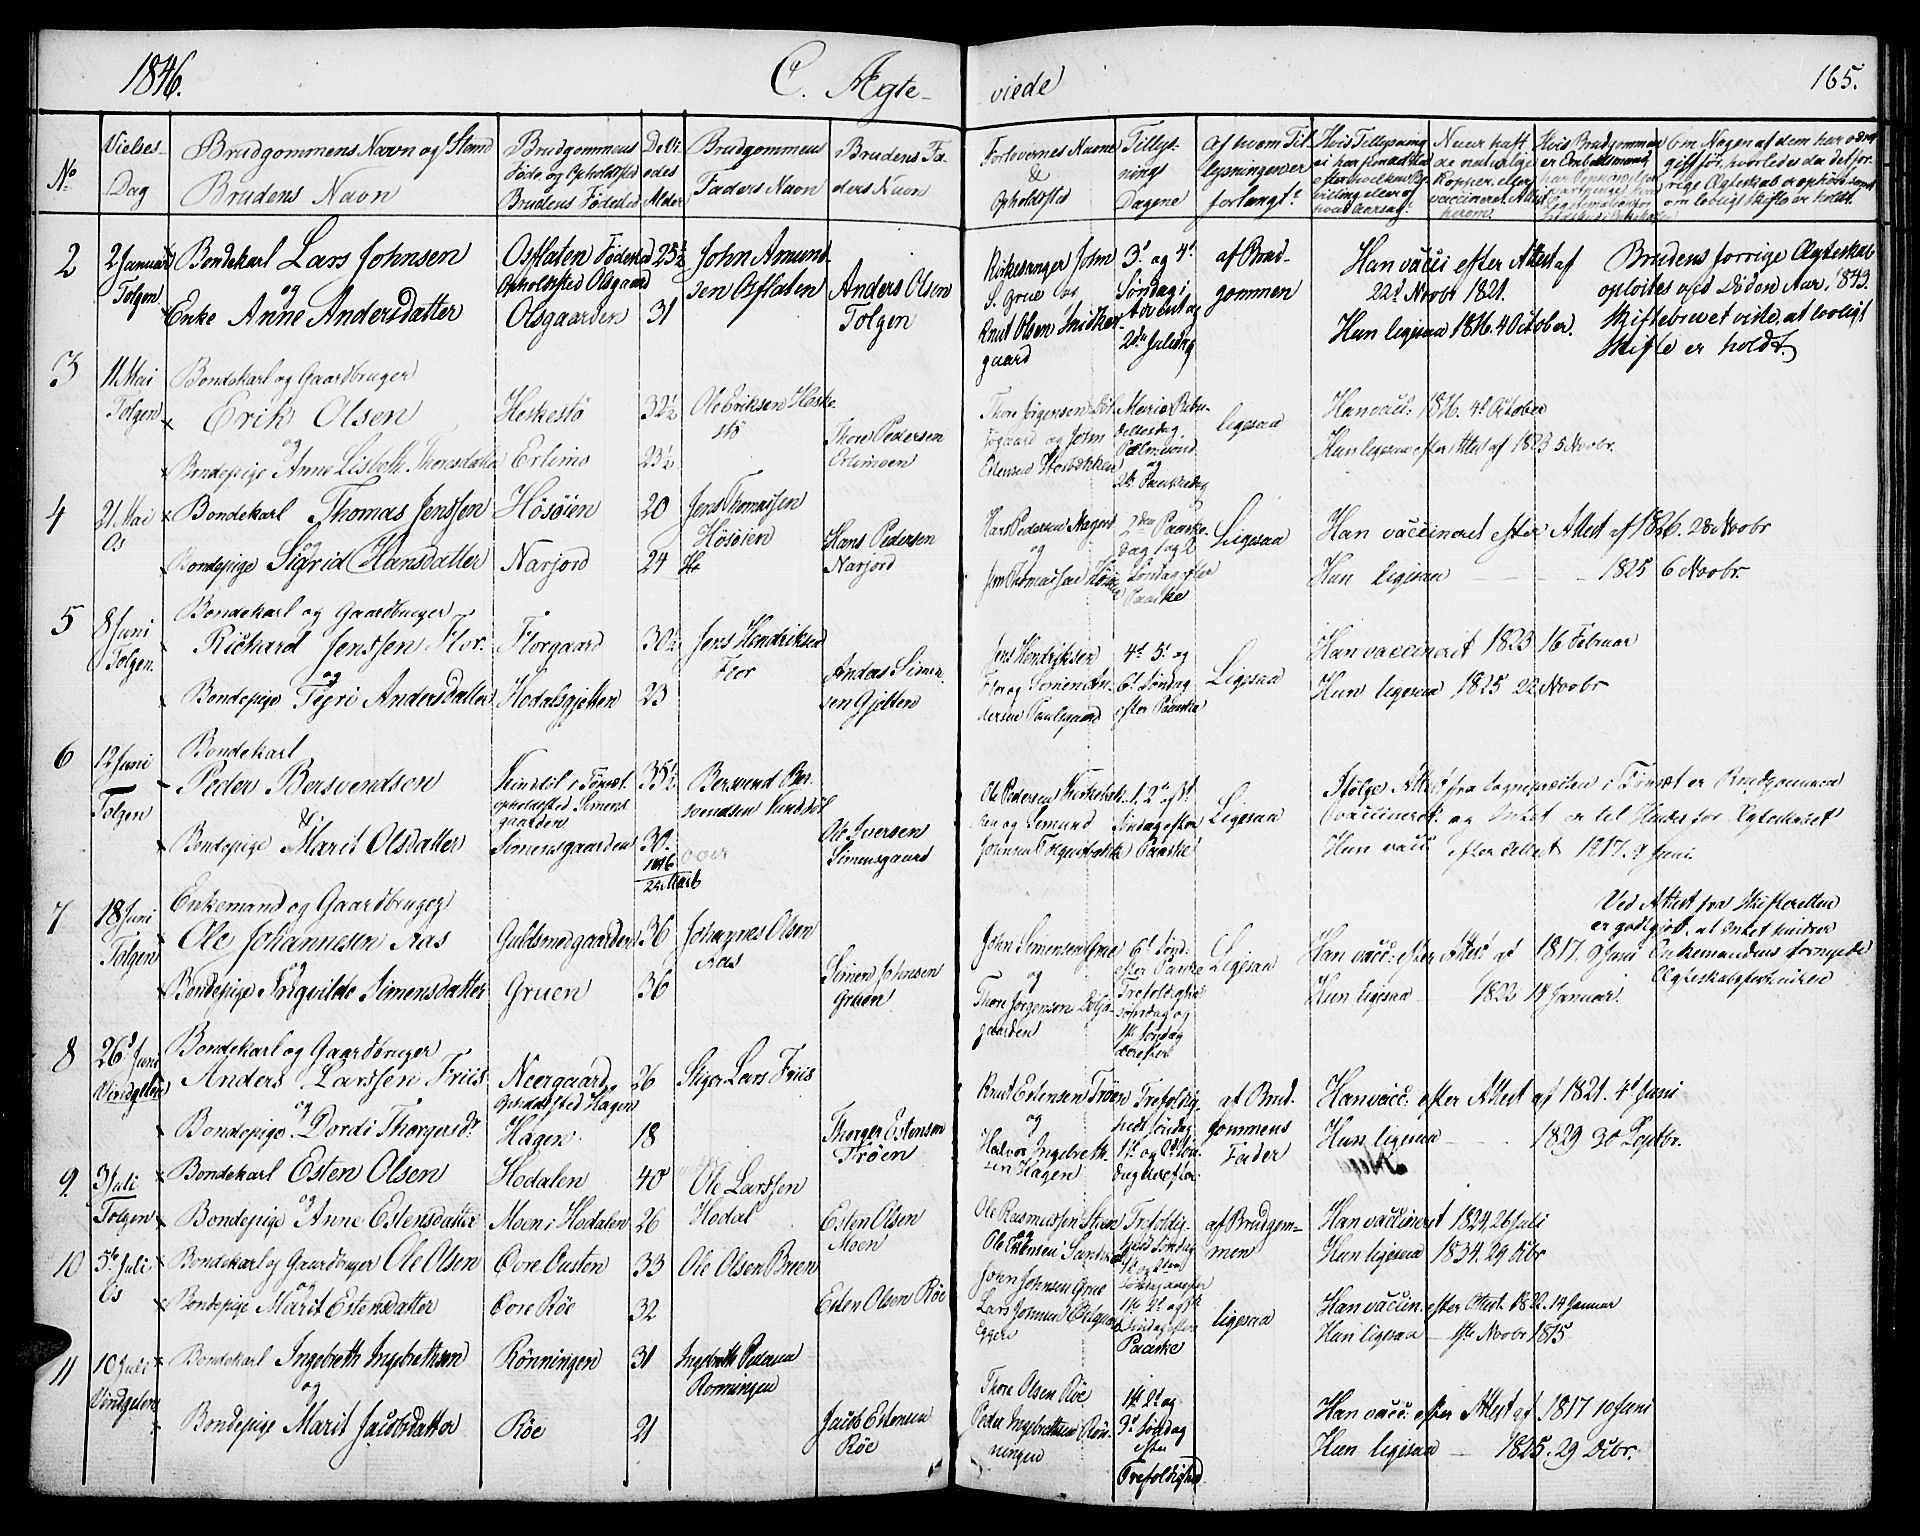 1846.
C. Ægte-
viede
165.
No
Vielses-
Dag
Brudgommens Navn og Stand
Brudens Navn
Brudgommens
Føde og Opholdsted
Brudens Fødested
De Vi
edes
Alder
Brudgommens
Faders Navn
Brudens Fa-
ders Navn
Forlovernes Navne
&
Opholdsted
Tillys-
nings
Dagene
Af hvem Til
lysningen er
forlangt
2
2 Januar
Tolgen
Bondekarl Lars Johnsen
og
Enke Anne Andersdatter
Osfloten Fødested
Opholdsted Olsgaard
Olsgaarden
25½
31
John Amund-
sen Osfloten
Anders Olsen
Tolgen
Kirkesanger John
S. Grue og
Knut Olsen
gaard
3d og 4d
Søndag i
Advent og
2den Juledag
af Brud-
gommen
Han vacci efter Attest af
22d Novbr 1821.
Hun ligesaa 1816. 4 October.
Brudens forrige Ægteskab
opløstes ved Døden Aar 1843.
Skiftebrevet viste, at lovligt
Skifte er holdt.
3
11 Mai
Tolgen
Bondekarl og Gaardbruger
Erik Olsen
og
Bondepige Anne Lisbeth Thoresdatter
Heskestø
Erlimo
32½
23½
Ole Eriksen Heske-
stø
Thore Pedersen
Erlimoen
Mariæ Bebu-
delsesdag
Palmesønd
og
2d Paaskedag
ligesaa
Han vacc: 1816. 4d October
Hun ligesaa efter Attest af 1823 5 Novbr.
4
21 Mai
Os
Bondekarl Thomas Jenssen
og
Bondepige Sigrid Hansdatter
Høsøien
Narjord
20
24
Jens Thomassen
Høsøien
Hans Pedersen
Narjord
Hans Pedersen Narjord
og
Jens Thomassen
2den Paaske-
dag 1 og 2
Søndag efter
Paaske
Ligesaa
Han vaccineret efter Attest af 1826. 28 Novbr
Hun ligesaa 1825 6 Novbr.
5
8 Juni
Tolgen.
Bondekarl og Gaardbruger
Richard Jenssen Flor.
og
Bondepige Tyri Andersdatter
Florgaard
Hodalsgjetten
30½
23
Jens Hendriksen
Flor
Anders Simen
sen Gjetten
Jens Hendriksen
Flor og Simen An-
dersen Paulsgaard
4d 5d og
6d Søndag
efter Paaske
Ligesaa
Han vaccineret 1823 16 Februar
Hun ligesaa 1825 22 Novbr
6
12 Juni
Tolgen
Bondekarl
Peder Bersvendsen
&
Bondepige Marit Olsdatter
Opholdsted Simens
gaarden
Simensgaarden
35½
30.
1816
24 Marts
Bersvend Ber-
svendsen
Ole Iversen
Simensgaard
Søndag efter
Paaske
Ligesaa
Ifølge Attest fra Sognepræsten i Tønset er Brudgommen
vaccineret og Intet er til Hinder for Ægteskabet
Hun vacc efter Attest 1817. 9 Juni
7
18 Juni
Tolgen
Enkemand og Gaardbruger
Ole Johannesen Aas
og
Bondepige Ingvilde Simensdatter
Guldsmedgaarden
Gruen
36
36
Johannes Olsen
Aas
Simen Johnsen
Gruen
John Simensen Grue
og
Thore Jørgensen
gaarden
6d Sønd.
efter Paaske
Trefoldigheds
søndag og
1ste Søndag
derefter
Ligesaa
Han vacc: efter Attest af 1817. 9 Juni
Hun ligesaa 1822 14 Januar.
Ved Attest fra Skifteretten
er godtgjort, at intet hindrer
Enkemandens fornyede
Ægteskabs
8
26d Juni
Vindgelen
Bondekarl og Gaardbruger
Anders Larssen Friis
og
Bondepige Dordi Thorgersdr
Neergaard
Opholdsted Hagen
Hagen
26
18
Lars Friis
Thorger Estensen
Trøen
Knut Estensen Trøen
og
Halvor Ingebreth-
sen Hagen
Trefoldig-
heds Søndag
1ste og 2d Søn
dag derefter
af Brud-
gommens
Fader
Han vacc: efter Attest af 1821. 4d Juni
Hun ligesaa 1829 30 Septbr.
9.
3 Juli
Tolgen
Bondekarl Esten Olsen
og
Bondepige Anne Estensdatter
Hodalen
Moen i Hodalen
40
26
Ole Larssen
Hodal
Esten Olsen
Moen
Ole Rasmussen Steen
og
Ole Estensen
Trefoldig-
heds Søndag
af Brudgom-
men
Han vaccineret 1824. 26 Juli
Hun ligesaa 1834. 29 Dcbr
10
5te Juli
Os
Bondekarl og Gaardbruger Ole Olsen
og
Bondepige Marit Estensdatter
Øvre Øusten
Øvre Røe
33
32
Ole Olsen Bruen
Esten Olsen Røe
John Johnsen Grue
Eggen
Søndag efter
Paaske
ligesaa
Han vaccin. efter Attest 1822. 14 Januar
Hun ligesaa 1ste Novbr 1815
11
10 Juli
Vindgelen
Bondekarl Ingebreth Ingebrethsen
og
Bondepige Marit Jacobsdatter
Rønningen
Røe
31
21
Ingebreth Pedersen
Rønningen
Jacob Estensen
Røe
Thore Olsen Røe
Peder Ingebrethsen Røn-
ningen
1ste 2d og
3d Søndag
efter
Trefoldighed
Han vacc: efter Attest af 1817 10 Juni
Hun ligesaa 1825. 29 Dcbr.